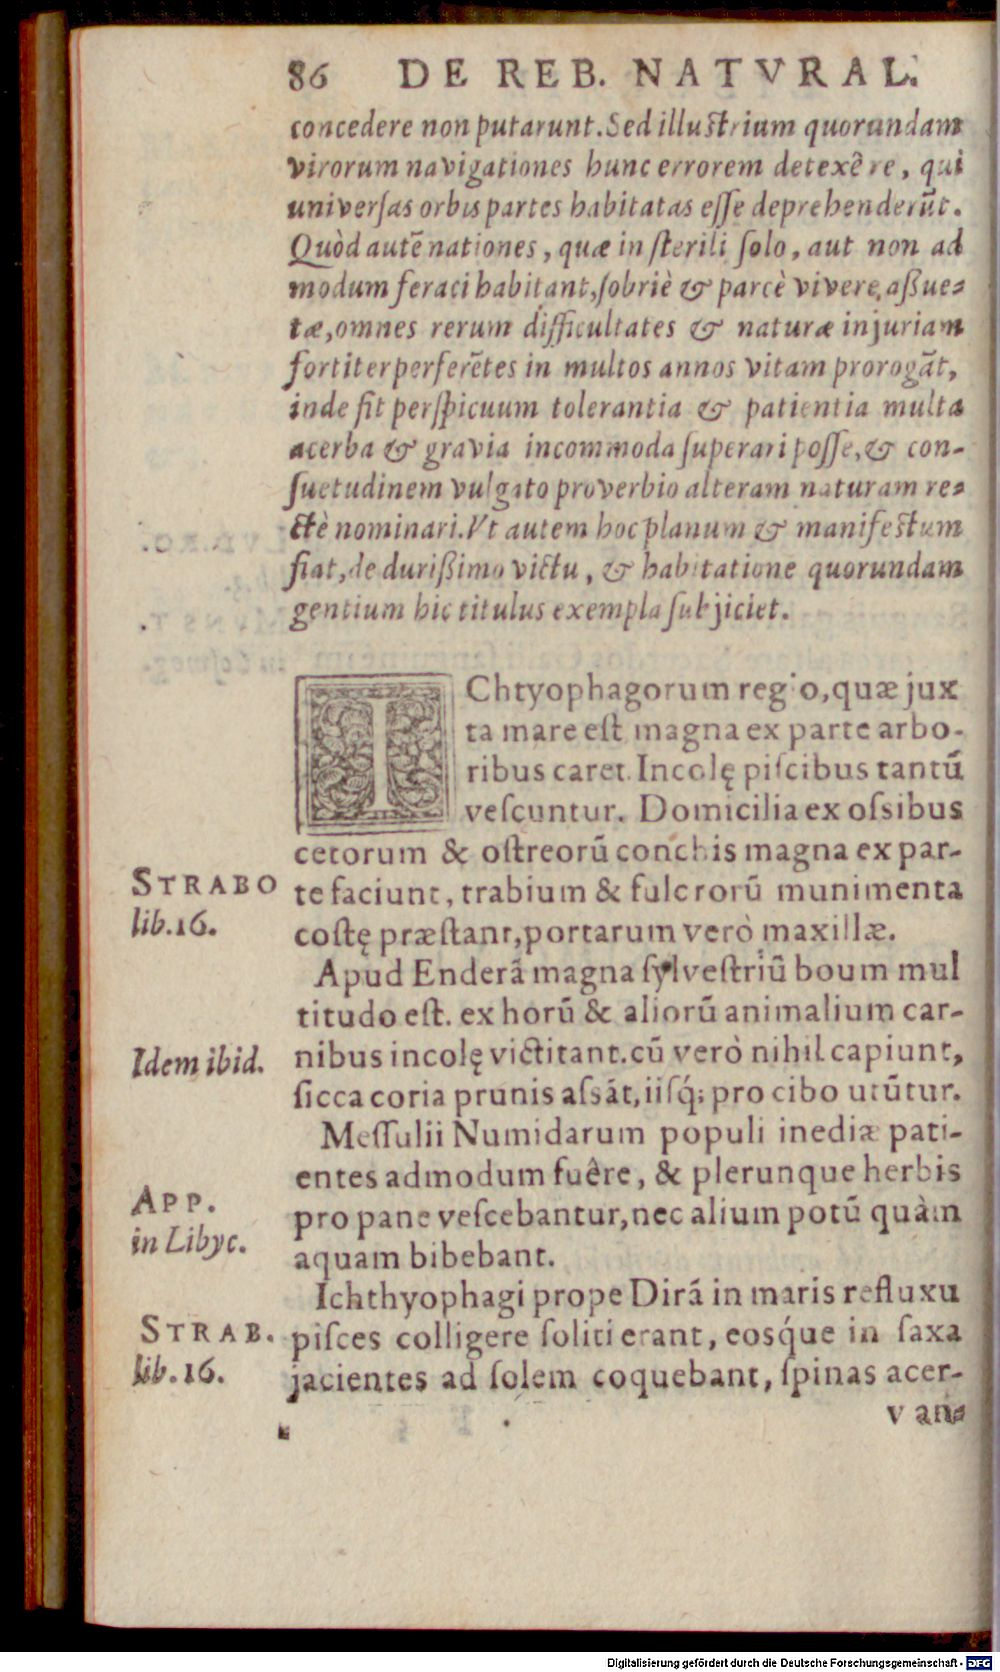 86 DE REB. NATVRAL.
concedere non putarunt. Sed illustrium quorundam
virorum navigationes hunc errorem detexêre, qui
universas orbis partes habitatas esse deprehenderũt.
Quòd autẽ nationes, quæ in sterili solo, aut non ad
modum feraci habitant, sobriè & parcè vivere, aßue=
tæ, omnes rerum difficultates & naturæ injuriam
fortiter perferẽtes in multos annos vitam prorogãt,
inde fit perspicuum tolerantia & patientia multa
acerba & gravia incommoda superari posse, & con-
suetudinem vulgato proverbio alteram naturam re=
ctè nominari. Vt autem hoc planum & manifestum
fiat, de durißimo victu, & habitatione quorundam
gentium hic titulus exempla subjiciet.
IChtyophagorum regio, quæ jux
ta mare est magna ex parte arbo-
ribus caret. Incolę piscibus tantũ
vescuntur. Domicilia ex ossibus
cetorum & ostreorũ conchis magna ex par-
te faciunt, trabium & fulcrorũ munimenta
costę præstant, portarum verò maxillæ.
STRABO
lib. 16.
Apud Enderã magna sylvestriũ boum mul
titudo est. ex horũ & aliorũ animalium car-
nibus incolę victitant. cũ verò nihil capiunt,
sicca coria prunis assãt, iisq́; pro cibo utũtur.
Idem ibid.
Messulii Numidarum populi inediæ pati-
entes admodum fuêre, & plerunque herbis
pro pane vescebantur, nec alium potũ quàm
aquam bibebant.
APP.
in Libyc.
Ichthyophagi prope Dirã in maris refluxu
pisces colligere soliti erant, eosq́ue in saxa
jacientes ad solem coquebant, spinas acer-
STRAB.
lib. 16.
van=
Digitalisierung gefördert durch die Deutsche Forschungsgemeinschaft - DFG